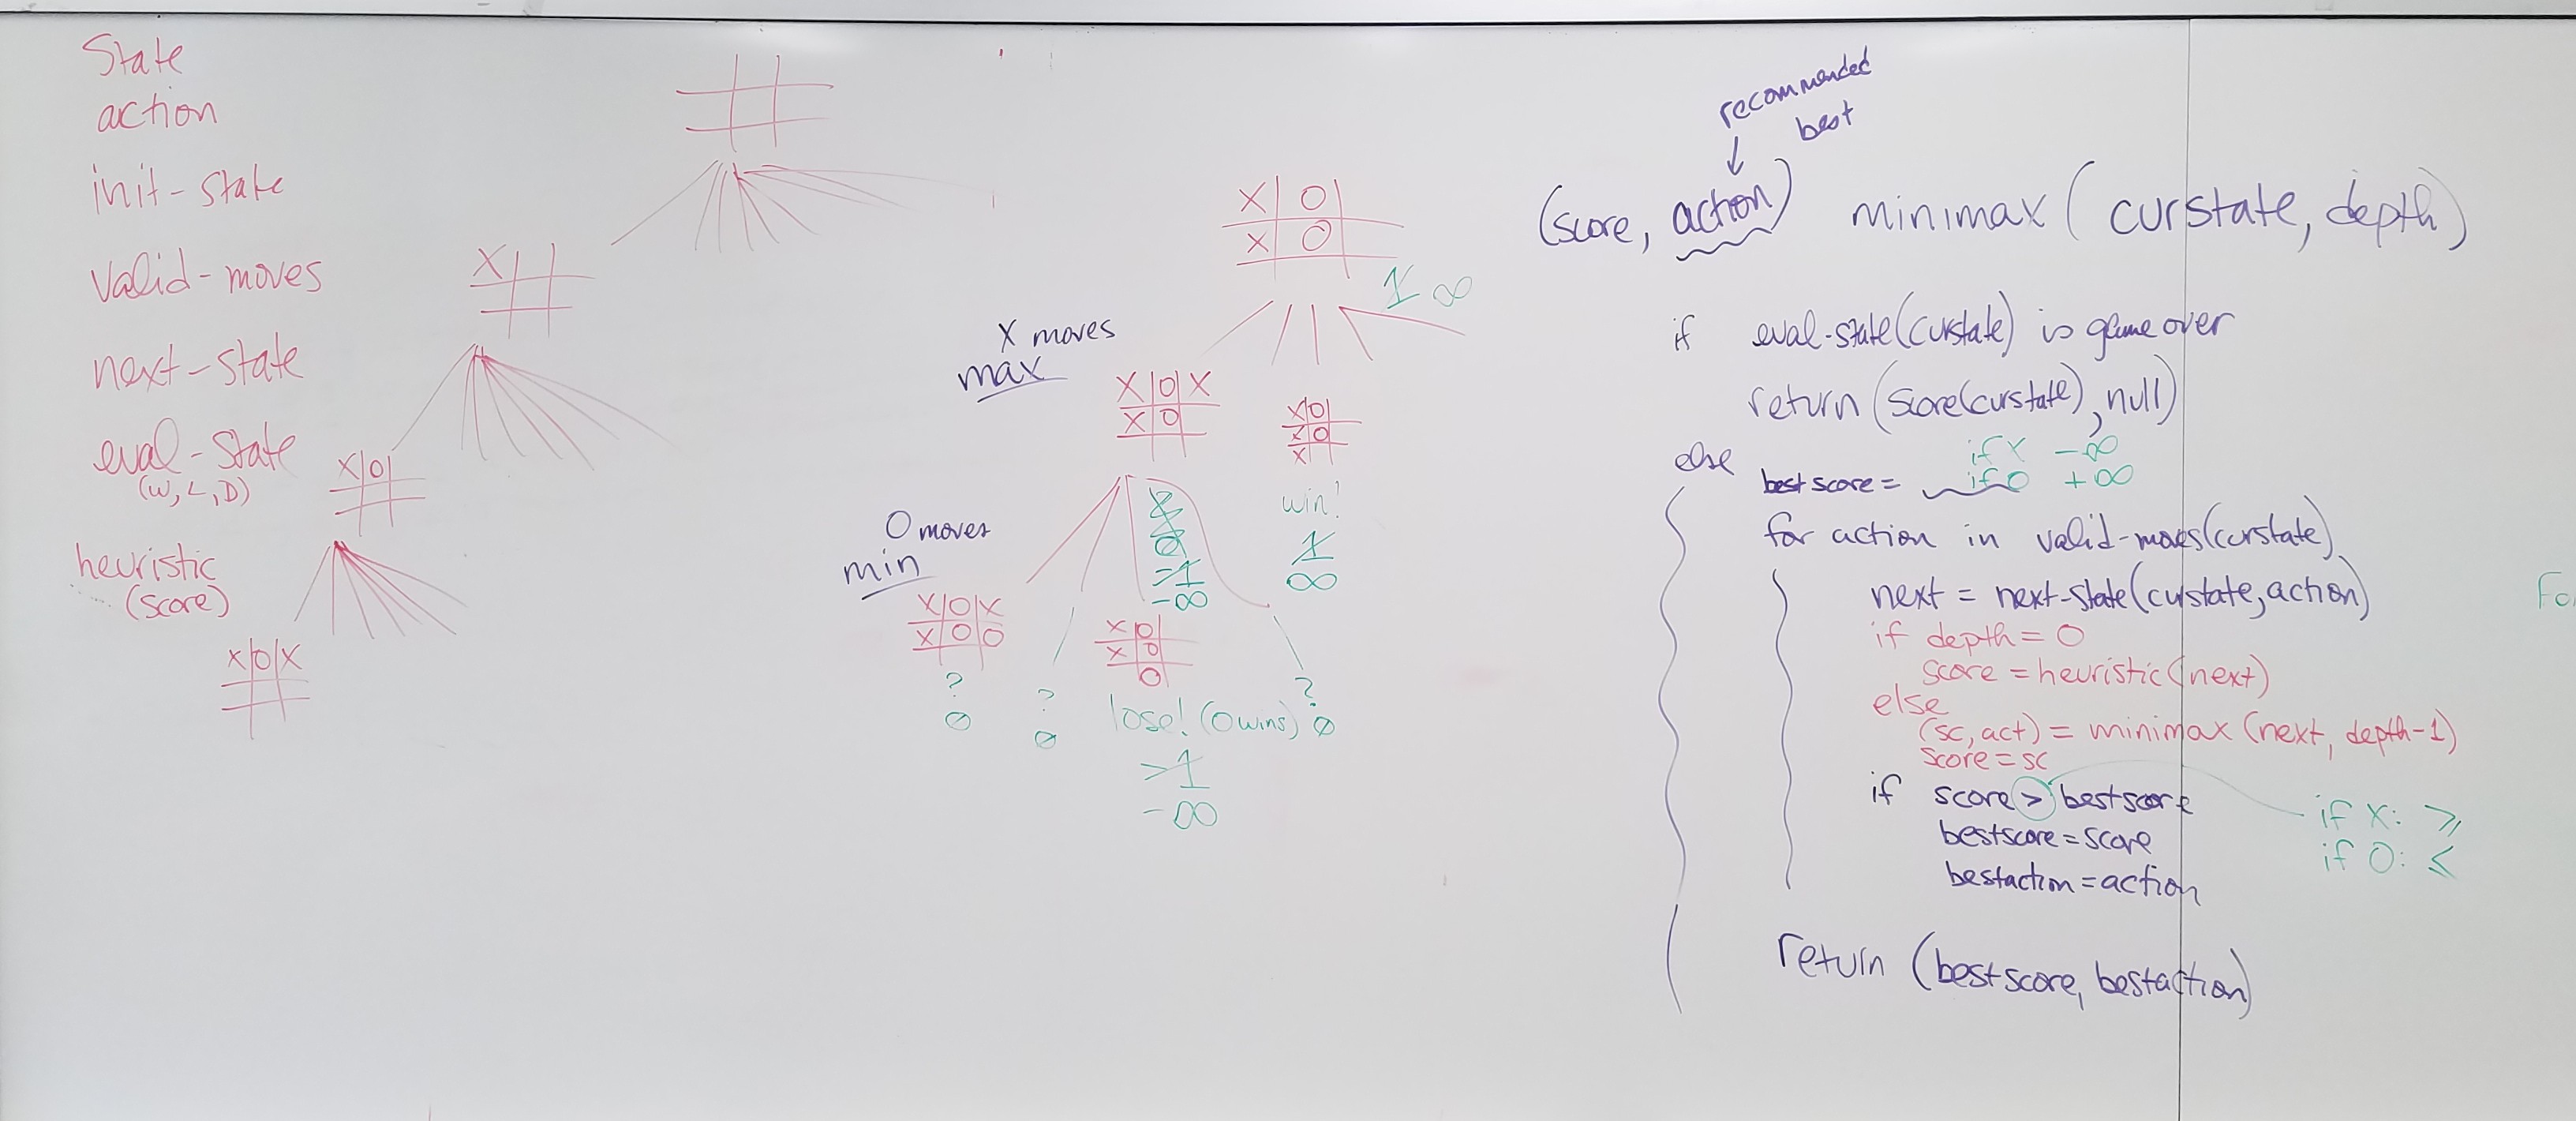 State
action
init-state
valid-moves
next-state
eval-state
(W, L, D)
heuristic
(score)
X
X|O|
X|O|X
X|O
X|O
1 ∞
X moves
max
X|O|X
X|O|
X|O|
X|O|
X
win!
1
∞
O moves
min
-1
-∞
X|O|X
X|O|O
?
0
?
0
X|O|
X|O|
O
lose! (O wins)
-1
-∞
?
0
recommended
best
(score, action) minimax(curstate, depth)
if eval-state(curstate) is game over
return (score(curstate), null)
else
if X -∞
bestscore = if O +∞
for action in valid-moves(curstate)
next = next-state(curstate, action)
if depth = 0
score = heuristic(next)
else
(sc, act) = minimax (next, depth-1)
score = sc
if score > bestscore
bestscore = score
bestaction = action
if X: ≥
if O: ≤
return (bestscore, bestaction)